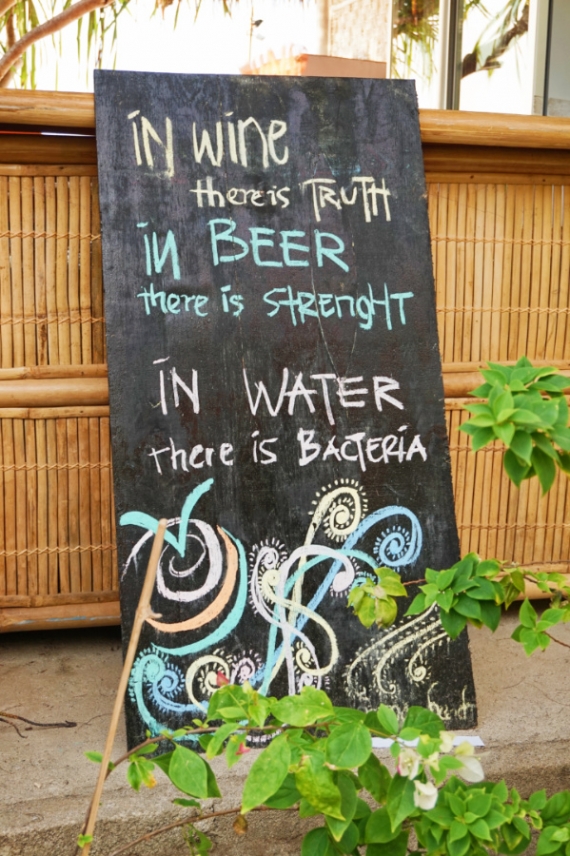 iN wine
there is TRUTH
in BEER
there is STRENGHT
iN WATER
there is BACTERiA